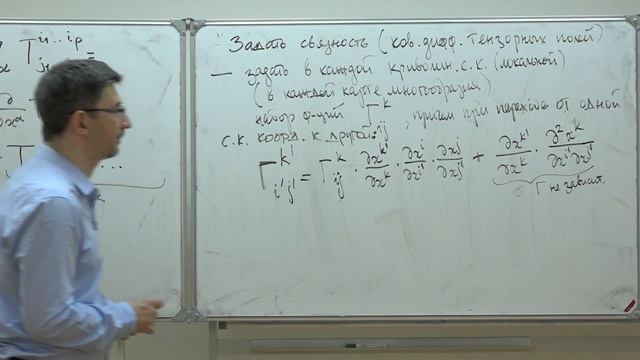 T^{i_1...i_p} =
∂/∂x^α
Задать связность (ков. дифф. тензорных полей)
— задать в каждой криволин. с.к. (локальной)
(в каждой карте многообразия)
набор ф-ций Γ^k_{ij}, причем при переходе от одной
с.к. коорд. к другой:
Γ^{k'}_{i'j'} = Γ^k_{ij} · ∂x^{k'}/∂x^k · ∂x^i/∂x^{i'} · ∂x^j/∂x^{j'} + ∂x^{k'}/∂x^k · ∂²x^k/∂x^{i'}∂x^{j'}
от Γ не зависит.